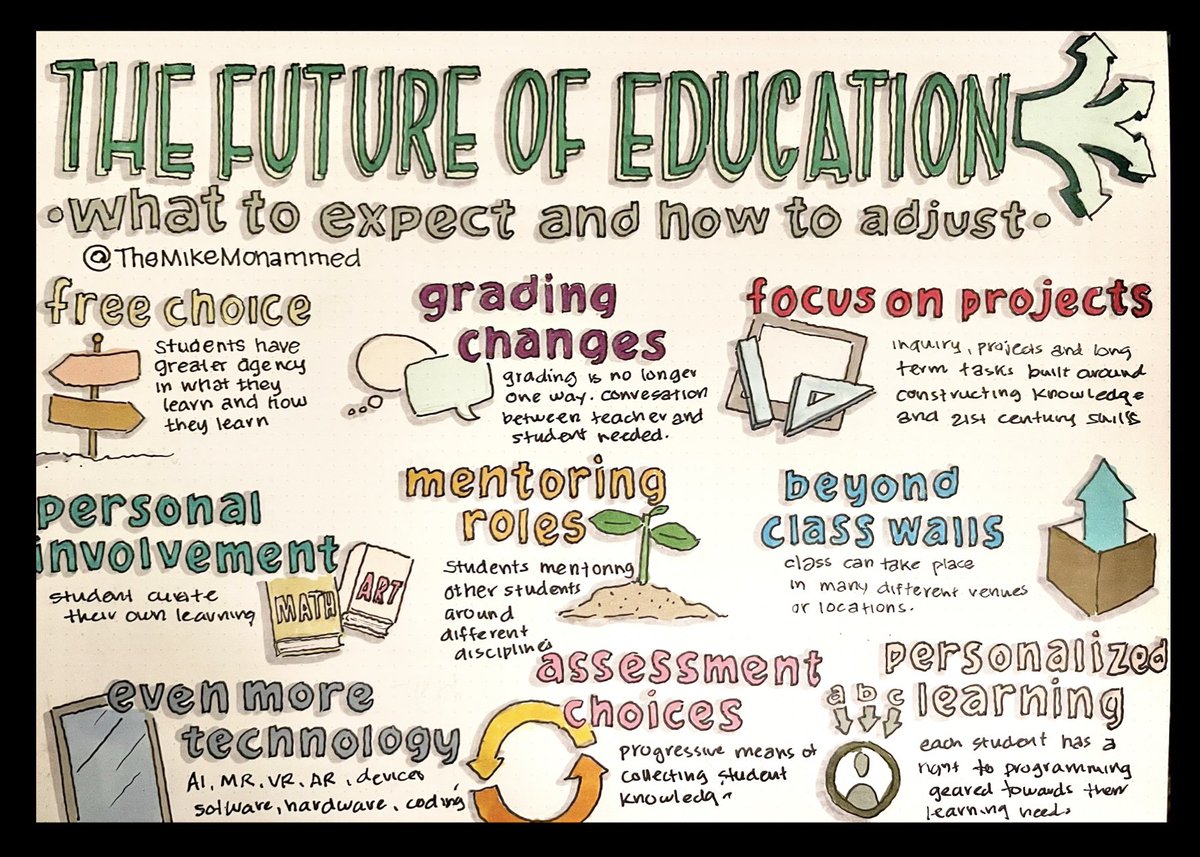 THE FUTURE OF EDUCATION
•what to expect and how to adjust•
@TheMikeMohammed
free choice
students have
greater agency
in what they
learn and how
they learn
grading
changes
grading is no longer
one way. convesation
between teacher and
student needed.
focus on projects
inquiry, projects and long
term tasks built around
constructing knowledge
and 21st century skills
personal
involvement
student curate
their own learning
MATH
ART
mentoring
roles
students mentoring
other students
around
different
disciplines
beyond
class walls
class can take place
in many different venues
or locations.
even more
technology
AI, MR, VR, AR, devices
software, hardware, coding,
assessment
choices
progressive means of
collecting student
knowledge
personalized
learning
a b c
each student has a
right to programming
geared towards their
learning needs